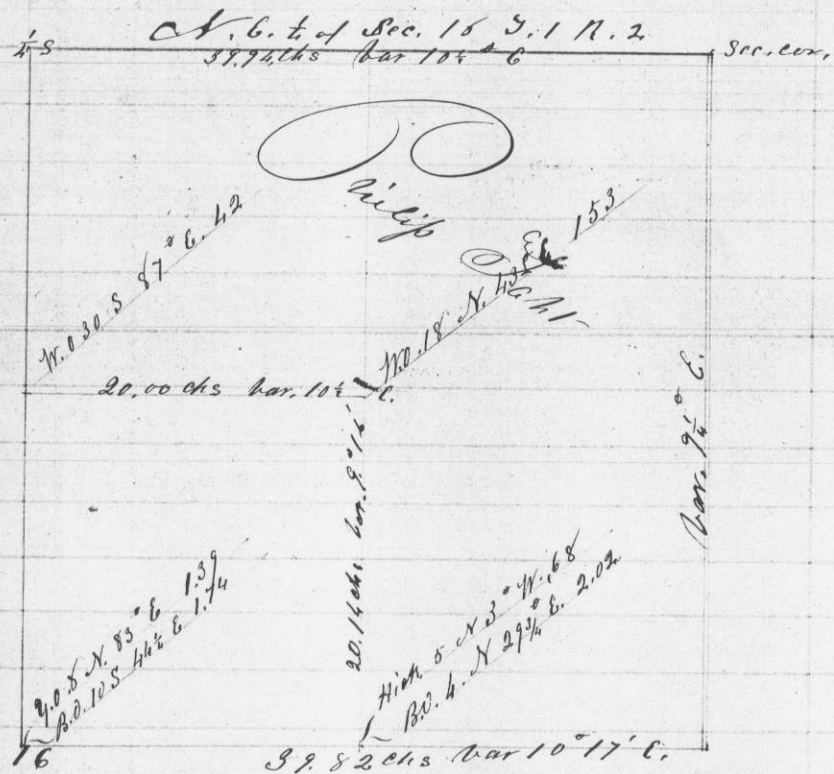 N. E. ¼ of Sec. 16 T. 1 R. 2
¼ S
39.94 chs Var 10¼° E
Sec. cor.
Philip
W.O 30 S 87° E. 42
W.O. 18 N. 43½ E 153
20.00 chs Var. 10½ E.
Var. 9¼° E.
20.14 chs Var. 9°
Y.O. 8 N. 83° E 1.39
B.O. 10 S 44½ E 1.74
Hick 5 N 3° W. 68
B.O. 4. N 29¾° E. 2.02
16
39.82 chs Var 10° 17' E.